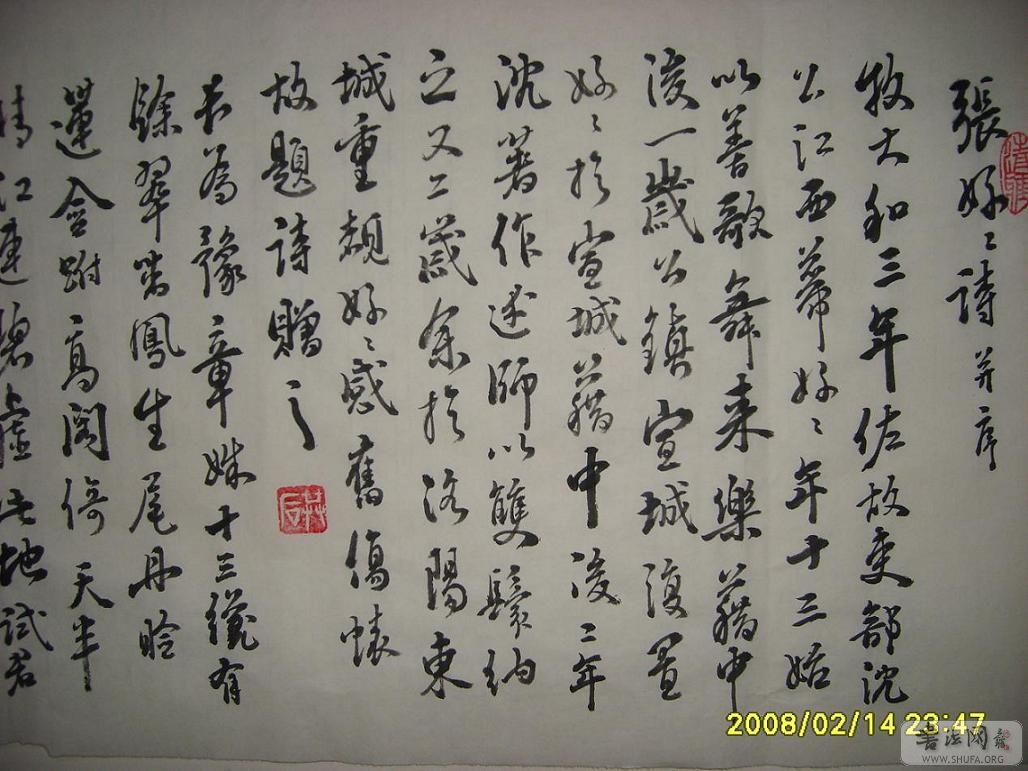 張好〻詩 并序
牧大和三年佐故吏部沈
公江西幕好〻年十三始
以善歌舞来樂籍中
後一歲公鎮宣城復置
好〻於宣城籍中後二年
沈著作述師以雙鬟納
之又二歲余於洛陽東
城重覩好〻感舊傷懐
故題詩贈之
君為豫章姝十三纔有
餘翠茁鳳生尾丹臉
蓮含跗高閣倚天半
晴江連碧虛此地試君
2008/02/14 23:47
書法网
WWW.SHUFA.ORG